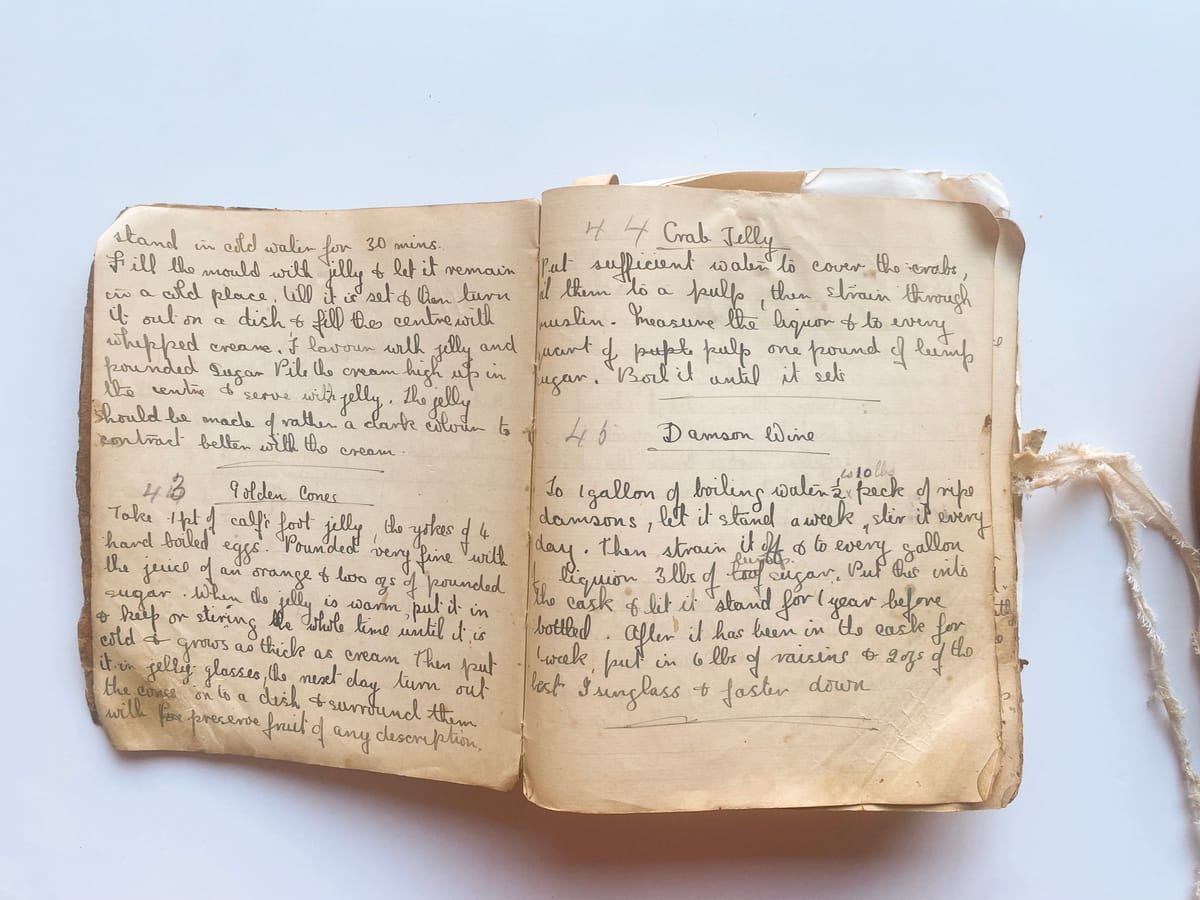 stand in cold water for 30 mins.
Fill the mould with jelly & let it remain
in a cold place, till it is set & then turn
it out on a dish & fill the centre with
whipped cream. Flavour with jelly and
pounded sugar Pile the cream high up in
the centre & serve with jelly. The jelly
should be made of rather a dark colour to
contract better with the cream.
43 Golden Cones
Take 1pt of calf's foot jelly, the yokes of 4
hard boiled eggs. Pounded very fine with
the juice of an orange & two ozs of pounded
sugar. When the jelly is warm, put it in
& keep or stiring the whole time until it is
cold & grows as thick as cream Then put
it in jelly glasses, the next day turn out
the cones on to a dish & surround them
with preserve fruit of any description.
44 Crab Jelly
Put sufficient water to cover the crabs,
il them to a pulp, then strain through
muslin. Measure the liquor & to every
quart of pulp one pound of lump
sugar. Boil it until it sets
45 Damson Wine
10 lbs
To 1 gallon of boiling water ½ peck of ripe
damsons, let it stand a week, stir it every
day. Then strain it off & to every gallon
liquior 3lbs of loaf sugar. Put this into
the cask & let it stand for 1 year before
bottled. After it has been in the cask for
1 week, put in 6 lbs of raisins & 2 ozs of the
best Isunglass & fasten down